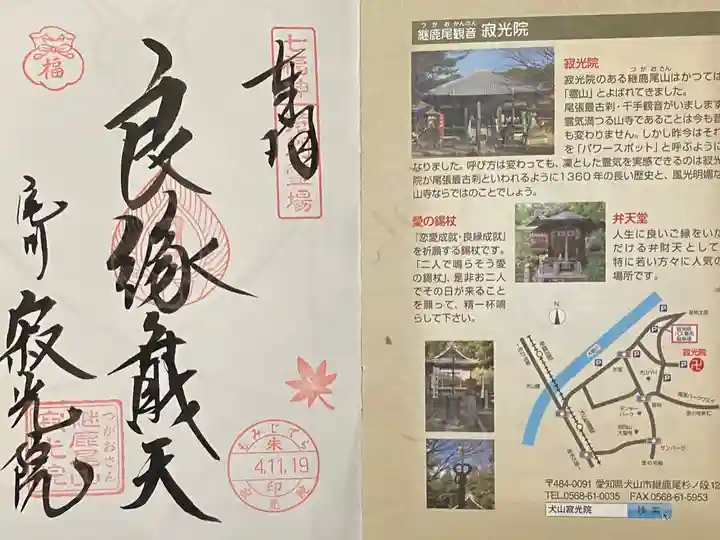 福
奉拝
良縁弁戝天
尾州
寂光院
つがおさん
継鹿尾山
寂光院
もみじでら
朱
4.11.19
印
つがおかんのん
継鹿尾観音 寂光院
寂光院
つがおさん
寂光院のある継鹿尾山はかつては
「霊山」とよばれてきました。
尾張最古刹・千手観音がいまします
霊気満つる山寺であることは今も昔
も変わりません。しかし昨今はそれ
を「パワースポット」と呼ぶように
なりました。呼び方は変わっても、凜とした霊気を実感できるのは寂光
院が尾張最古刹といわれるように1360年の長い歴史と、風光明媚な
山寺ならではのことでしょう。
愛の錫杖
『恋愛成就・良縁成就』
を祈願する錫杖です。
「二人で鳴らそう愛
の錫杖」、是非お二人
でその日が来ること
を願って、精一杯鳴
らして下さい。
弁天堂
人生に良いご縁をいた
だける弁財天として、
特に若い方々に人気の
場所です。
N
寂光院
P
P
P
モンキー
パーク
サンパーク
〒484-0091 愛知県犬山市継鹿尾杉ノ段12
TEL.0568-61-0035 FAX.0568-61-5953
犬山寂光院
検索